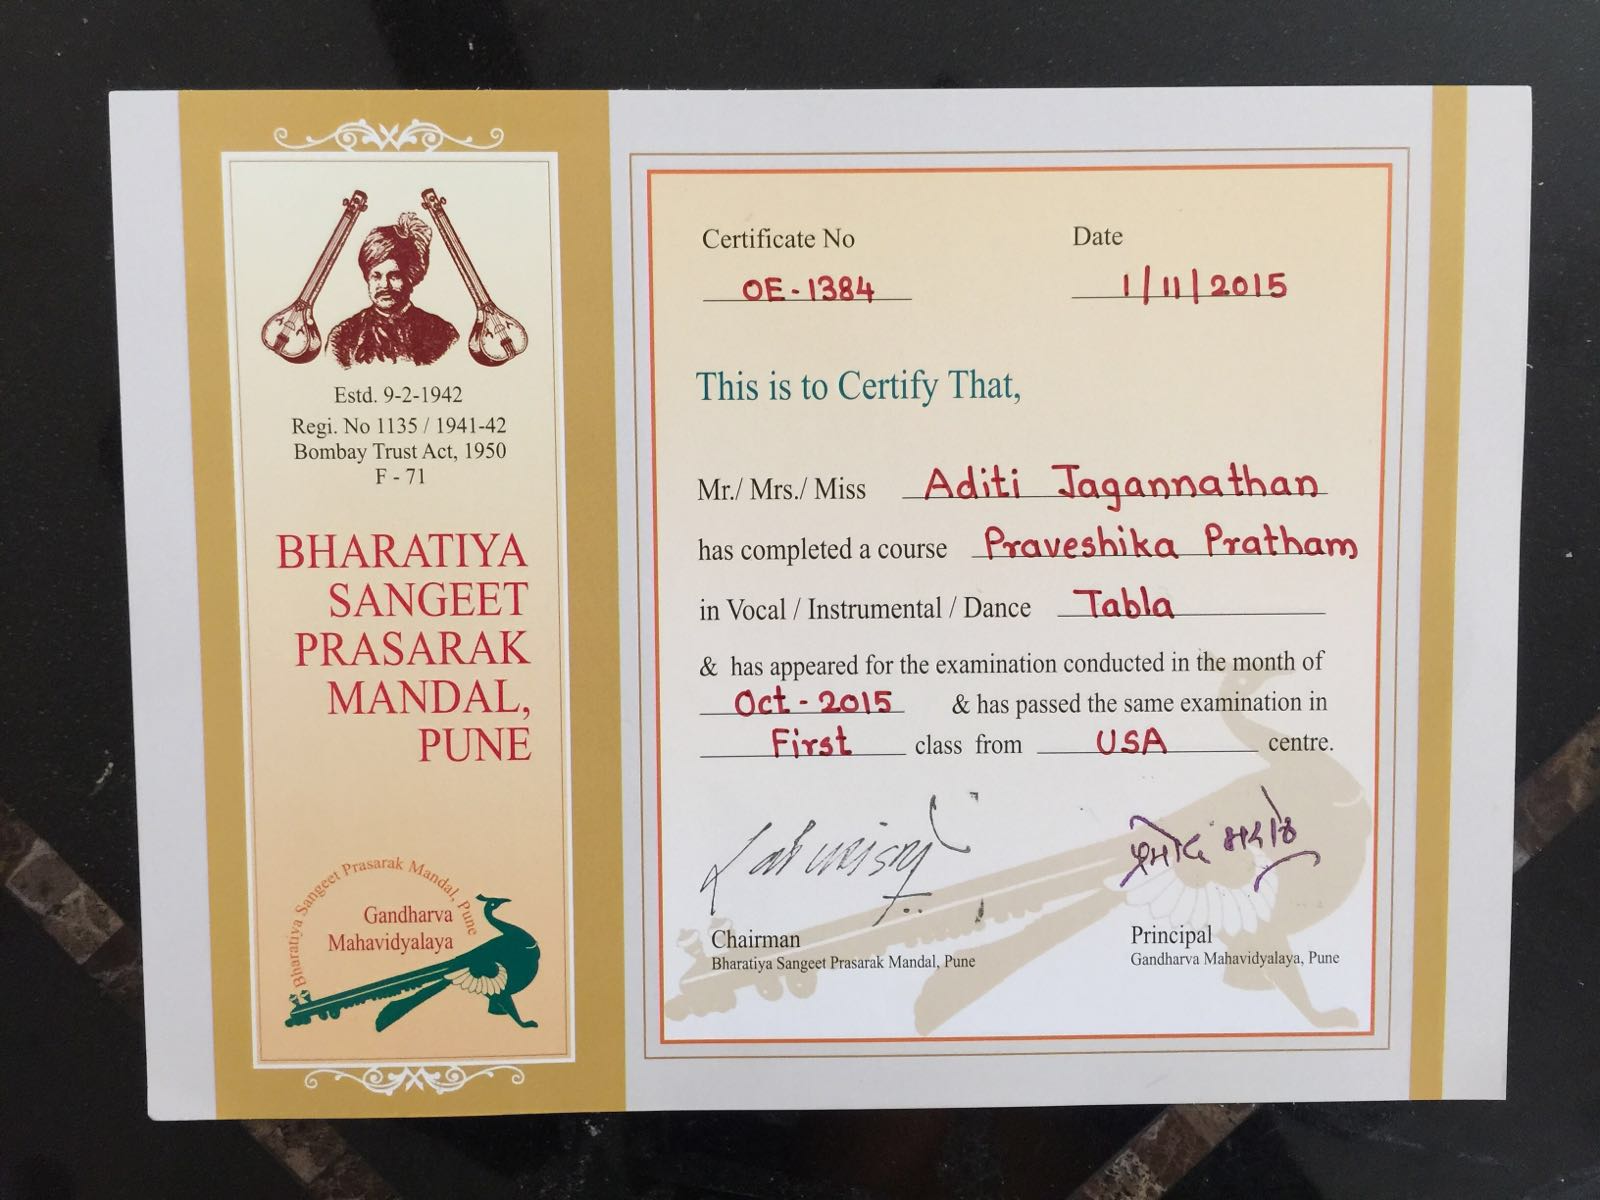 Estd. 9-2-1942
Regi. No 1135 / 1941-42
Bombay Trust Act, 1950
F - 71
BHARATIYA
SANGEET
PRASARAK
MANDAL,
PUNE
Bharatiya Sangeet Prasarak Mandal, Pune
Gandharva
Mahavidyalaya
Certificate No Date
OE-1384 1/11/2015
This is to Certify That,
Mr./ Mrs./ Miss Aditi Jagannathan
has completed a course Praveshika Pratham
in Vocal / Instrumental / Dance Tabla
& has appeared for the examination conducted in the month of
Oct - 2015 & has passed the same examination in
First class from USA centre.
Chairman Principal
Bharatiya Sangeet Prasarak Mandal, Pune Gandharva Mahavidyalaya, Pune